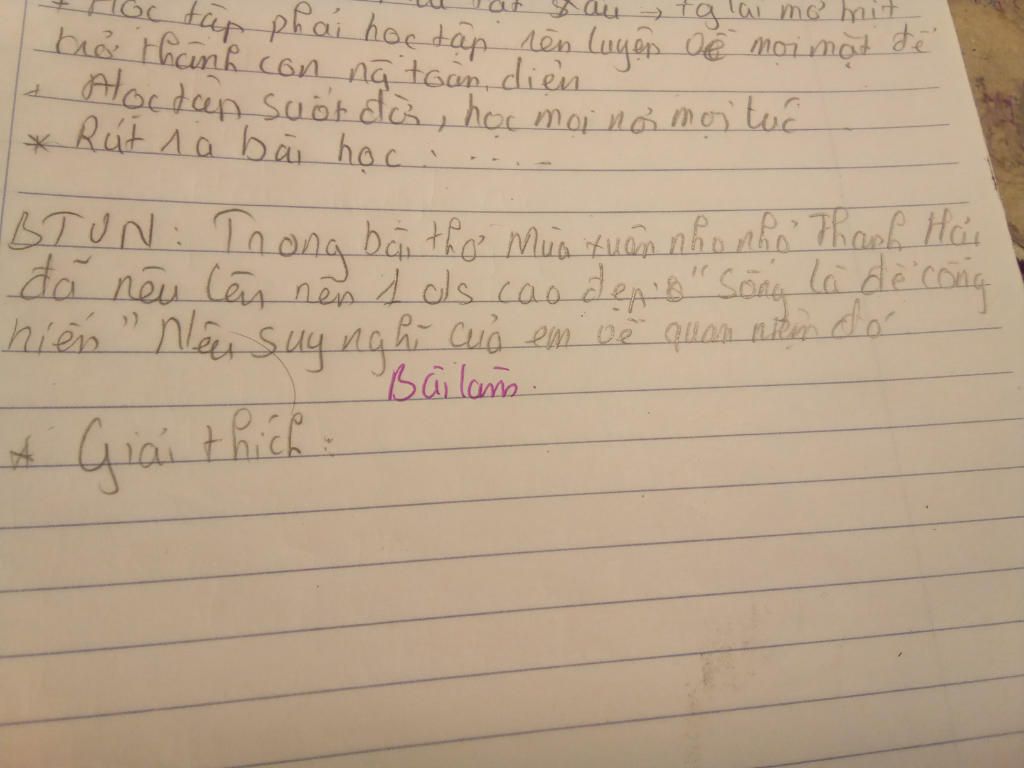 * Học tập phải học tập rèn luyện về mọi mặt để
trở thành con ng toàn diện
+ Học tập suốt đời, học mọi nơi mọi lúc
* Rút ra bài học : .....
BTVN: Trong bài thơ Mùa xuân nho nhỏ Thanh Hải
đã nêu lên nên 1 qls cao đẹp: "Sống là để cống
hiến" Nêu suy nghĩ của em về quan niệm đó
Bài làm.
* Giải thích: